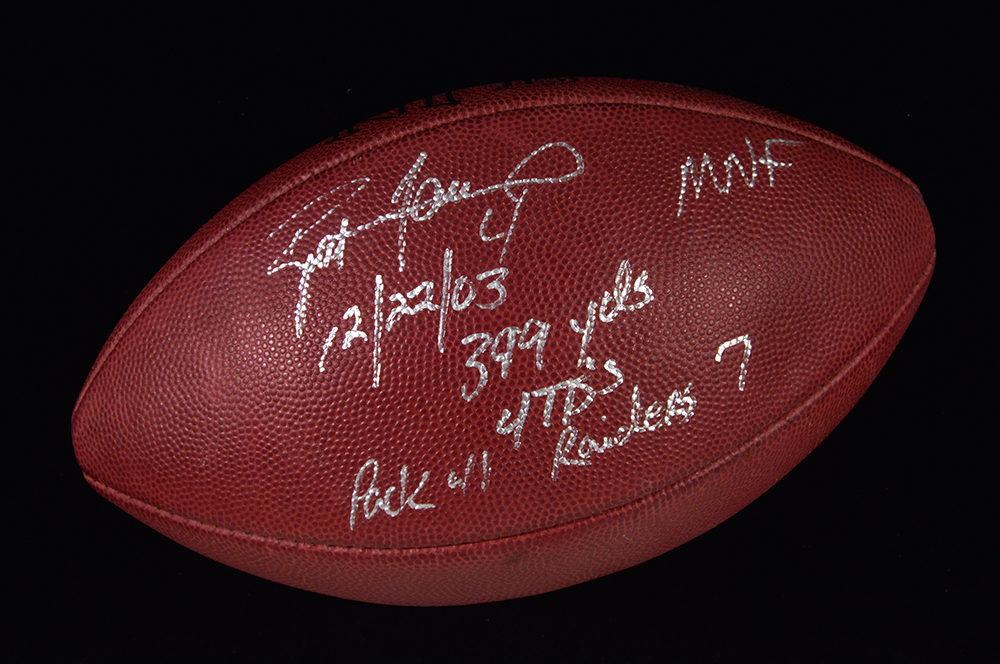 Brett Favre 4
MNF
12/22/03
399 yds
4 TD's
Pack 41 Raiders 7